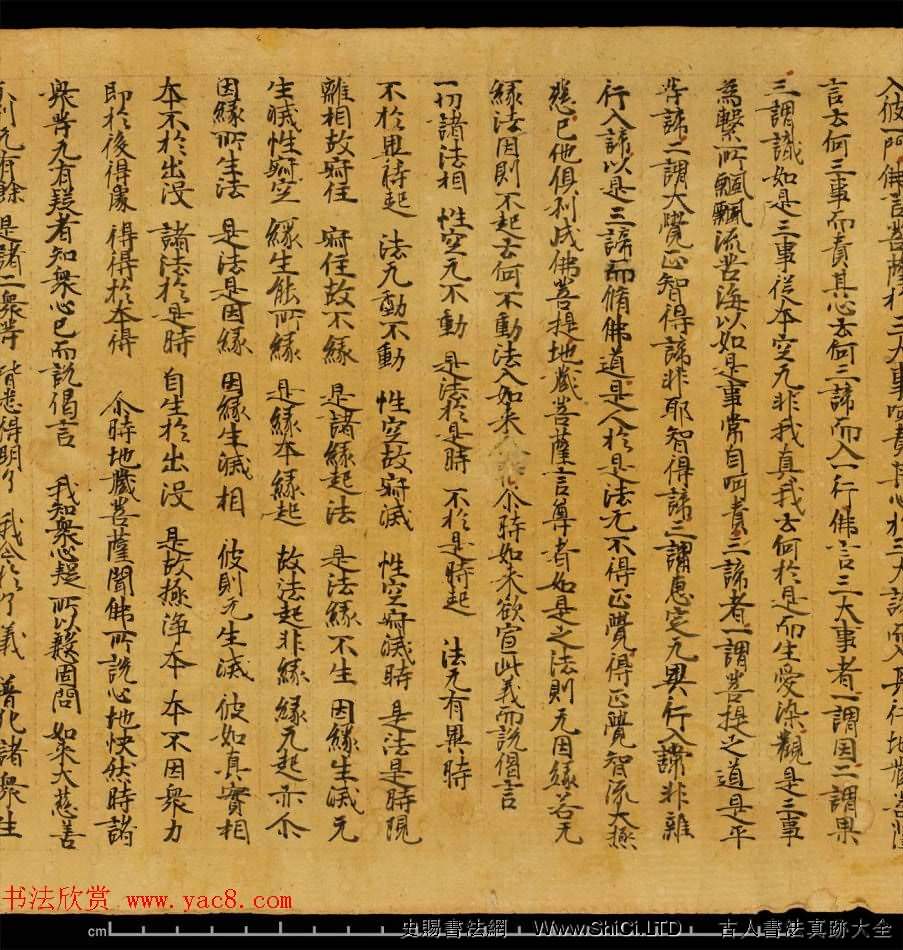 入彼一門佛言菩薩於三大事呵責其心於三大諦而入其行地藏菩薩
言云何三事而責其心云何三諦而入一行佛言三大事者一謂因二謂果
三謂識如是三事從本空无非我真我云何於是而生愛染觀是三事
為繫所飄飄流苦海以如是事常自呵責三諦者一謂菩提之道是平
等諦二謂大覺正智得諦非耶智得諦三謂惠定无異行入諦非雜
行入諦以是三諦而脩佛道是人於是法无不得正覺得正覺智流大極
慈己他俱利成佛菩提地藏菩薩言尊者如是之法則无因緣若无
緣法因則不起云何不動法入如來 尒時如來欲宣此義而說偈言
一切諸法相 性空无不動 是法於是時 不於是時起 法无有異時
不於異時起 法无動不動 性空故寂滅 性空寂滅時 是法是時現
離相故寂住 寂住故不緣 是諸緣起法 是法緣不生 因緣生滅无
生滅性寂空 緣生能所緣 是緣本緣起 故法起非緣 緣无起亦尒
因緣所生法 是法是因緣 因緣生滅相 彼則无生滅 彼如真實相
本不於出沒 諸法於是時 自生於出沒 是故極淨本 本不因衆力
即於後得處 得得於本得 尒時地藏菩薩聞佛所說心地快然時諸
衆等无有疑者知衆心已而說偈言 我知衆心疑 所以慇固問 如來大慈善
則无有餘 是諸二衆等 皆悉得明了 我今於了義 普化諸衆生
书法欣赏 www.yac8.com
cm
史賜書法網 WwW.ShiCi.LTD 古人書法真跡大全